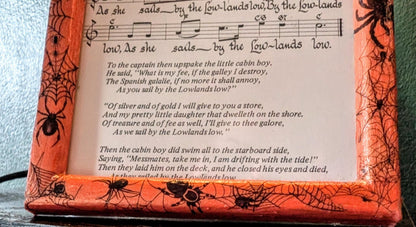 As she sails by the Low-lands low, By the Low-lands
C F C G7 C
low, As she sails by the Low-lands low.
To the captain then upspake the little cabin boy,
He said, "What is my fee, if the galley I destroy,
The Spanish galalie, if no more it shall annoy,
As you sail by the Lowlands low?"
"Of silver and of gold I will give to you a store,
And my pretty little daughter that dwelleth on the shore.
Of treasure and of fee as well, I'll give to thee galore,
As we sail by the Lowlands low."
Then the cabin boy did swim all to the starboard side,
Saying, "Messmates, take me in, I am drifting with the tide!"
Then they laid him on the deck, and he closed his eyes and died,
As they sailed by the Lowlands low.